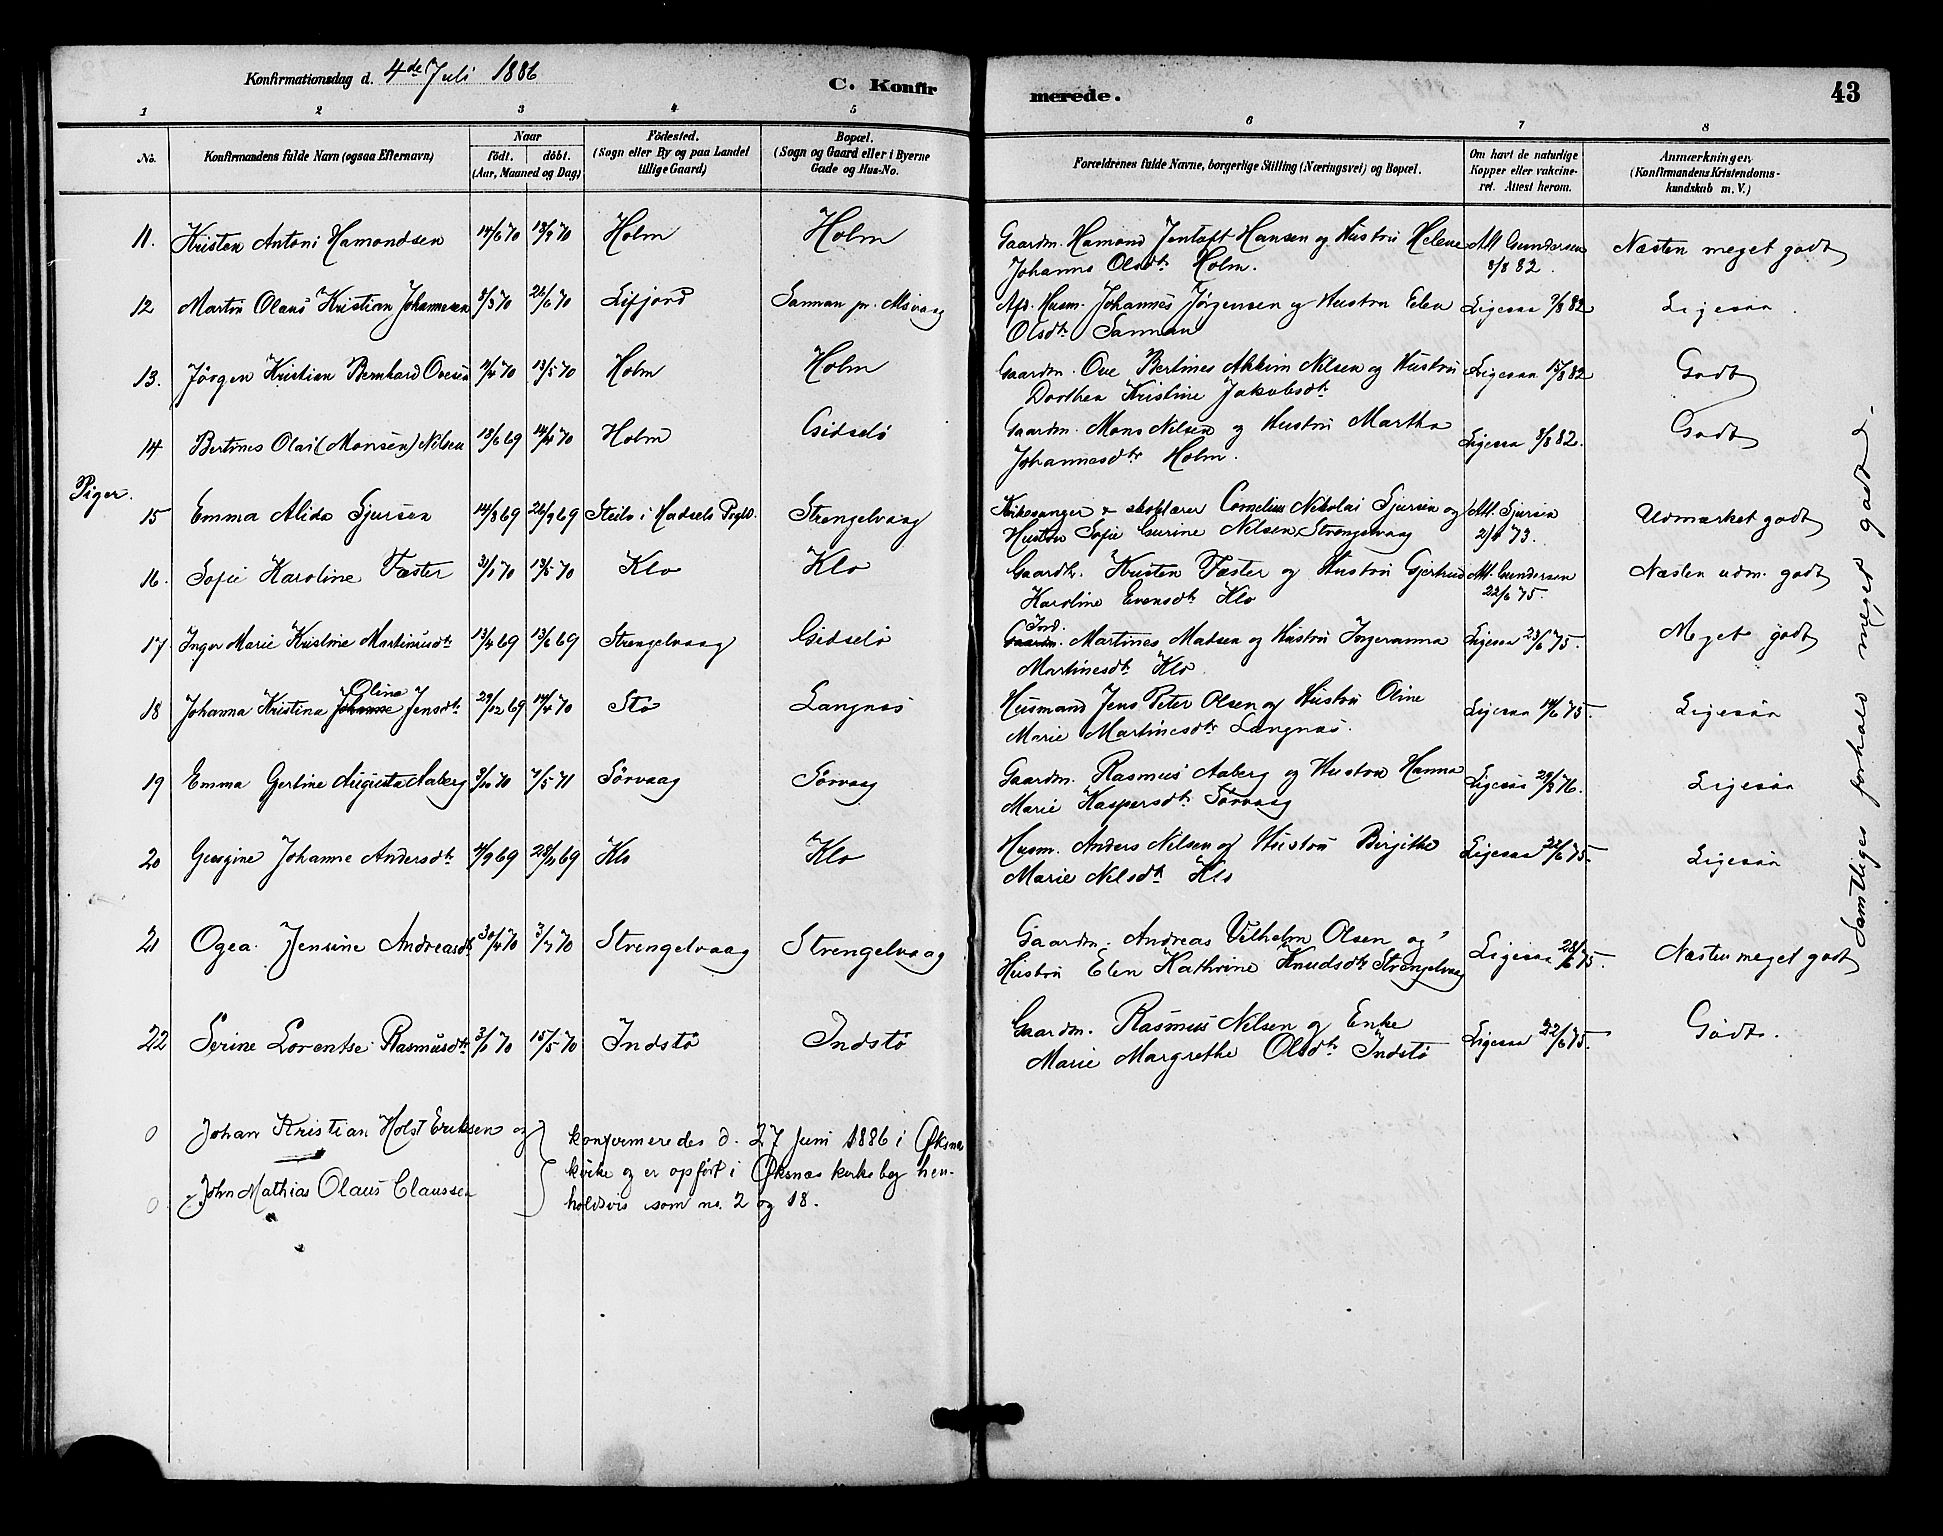 Konfirmationsdag d. 4de Juli 1886
C. Konfirmerede.
43
1 2 3 4 5 6 7 8
No.
Konfirmandens fulde Navn (ogsaa Efternavn)
Naar
födt. döbt.
(Aar, Maaned og Dag)
Födested.
(Sogn eller By og paa Landet
tillige Gaard)
Bopæl.
(Sogn og Gaard eller i Byerne
Gade og Hus-No.
Forældrenes fulde Navne, borgerlige Stilling (Næringsvei) og Bopæl.
Om havt de naturlige
Kopper eller vakcine-
ret. Attest herom.
Anmærkninger,
(Konfirmandens Kristendoms-
kundskab m. V.)
11. Kristen Antoni Hamondsen 14/6 70 18/9 70 Holm Holm Gaardm. Hamond Jentoft Hansen og Hustru Helene Att. Gundersen Næsten meget godt
Johanna Olsdtr Holm. 8/8 82.
12 Martin Olaus Kristian Johannesen 5/3 70 26/6 70 Lifjord Sannan pr. Alsvaag Afd. Husm. Johannes Jørgensen og Hustru Elen Ligesaa 9/8 82 Ligesaa.
Olsdtr Sannan
13. Jörgen Kristian Bernhard Ovesen 11/4 70 13/5 70 Holm Holm Gaardm. Ove Bertines Akkim Nilsen og Hustru Ligesaa 15/8 82 Godt
Dorthea Kristine Jakobsdtr
14 Bertines Olai (Monsen) Nilsen 18/6 69 14/4 70 Holm Gidselö Gaardm. Mons Nilsen og Hustru Martha Ligesaa 8/8 82. Godt
Johannesdtr Holm.
Piger.
15 Emma Alida Sjursen 14/8 69 26/9 69 Steilo i Hadsels Prgld. Strengelvaag Kirkesanger & skolelærer Cornelius Nikolai Sjursen og Att. Sjursen Udmærket godt
Hustru Sofie Gurine Nilsen, Strengelvaag 73.
16. Sofie Karoline Fæster 31/1 70 13/5 70 Klo Klo Gaardbr. Kristen Fæster og Hustru Gjertrud Att. Gundersen Næsten udm. godt
Karoline Evensdtr Klo 22/6 75.
17 Inger Marie Kristine Martinusdtr 13/4 69 13/6 69 Strengelvaag Gidselö Gaardm. Martines Madsen og Hustru Ingeranna Ligesaa 23/6 75. Meget godt
Martinesdtr Klo.
18 Johanna Kristina Johanne Olina Jensdtr 29/12 69 14/4 70 Stö Langnæs Husmand Jens Peter Olsen og Hustru Oline Ligesaa 14/6 75. Ligesaa
Marie Martinesdtr Langnæs.
19 Emma Gertine Augusta Aaberg 9/10 70 7/5 71 Sörvaag Sörvaag Gaardm. Rasmus Aaberg og Hustru Hanna Ligesaa 29/8 76. Ligesaa
Marie Kaspersdtr Sörvaag
20 Georgine Johanne Andersdtr 4/9 69 28/11 69 Klo Klo Husm. Anders Nilsen og Hustru Birgithe Ligesaa 22/6 75. Ligesaa
Marie Nilsdtr Klo
21 Ogea Jensine Andreasdtr 30/4 70 3/7 70 Strengelvaag Strengelvaag Gaardm. Andreas Vilhelm Olsen og Ligesaa 28/6 75. Næsten meget godt
Hustru Elen Kathrine Knudsdtr Strengelvaag
22 Serine Lorentse Rasmusdtr 3/1 70 15/5 70 Indstö Indstö Gaardm. Rasmus Nilsen og Enke Ligesaa 22/6 75. Godt.
Marie Margrethe Olsdtr Indstö
0 Johan Kristian Holst Eriksen og
0 John Mathias Olaus Claussen
konfirmeredes d. 27 Juni 1886 i Öksnæs
kirke og er opfört i Öksnæs kirkebog hen-
holdsvis som no. 2 og 18.
Samtliges forhold meget godt